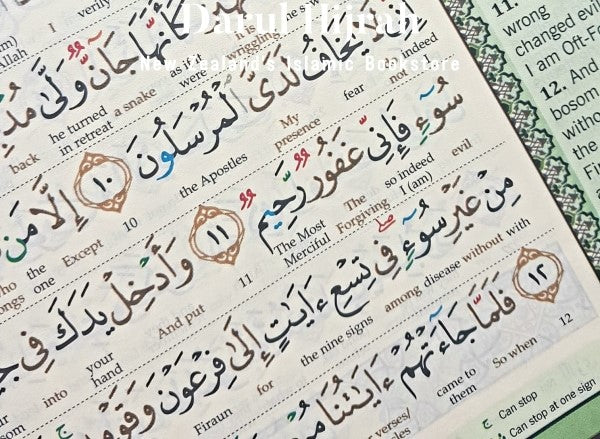 Darul Hijrah
New Zealand's Islamic Bookstore
Allah I verily
كَأَنَّهَا جَآنٌّ وَلَّىٰ
wriggling it is
as if were
a snake
he turned in retreat
back
يَخَافُ لَدَىَّ ٱلْمُرْسَلُونَ ١٠ إِلَّا مَن
indeed
not
fear
My presence
the Apostles
10
Except
the one
سُوٓءٍ فَإِنِّى غَفُورٌ رَّحِيمٌ ١١ وَأَدْخِلْ يَدَكَ فِى
evil
so indeed I (am)
The Forgiving
The Most Merciful
11
And put
your hand
into
مِنْ غَيْرِ سُوٓءٍ فِى تِسْعِ ءَايَٰتٍ إِلَىٰ فِرْعَوْنَ
with
without
disease
among
the nine signs
for
Firaun
١٢ فَلَمَّا جَآءَتْهُمْ ءَايَٰتُنَا
12
So when
came to them
verses/
11.
wrong
changed evil
I am Oft-Fo
12. And
bosom
witho
the
ج Can stop
Can stop at one sign